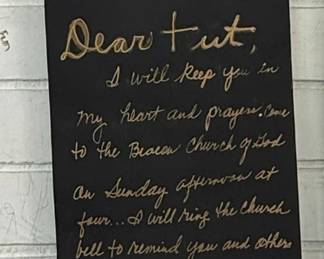 Dear Tut,
I will keep you in
my heart and prayers. Come
to the Beacon Church of God
on Sunday afternoon at
four... I will ring the church
bell to remind you and others